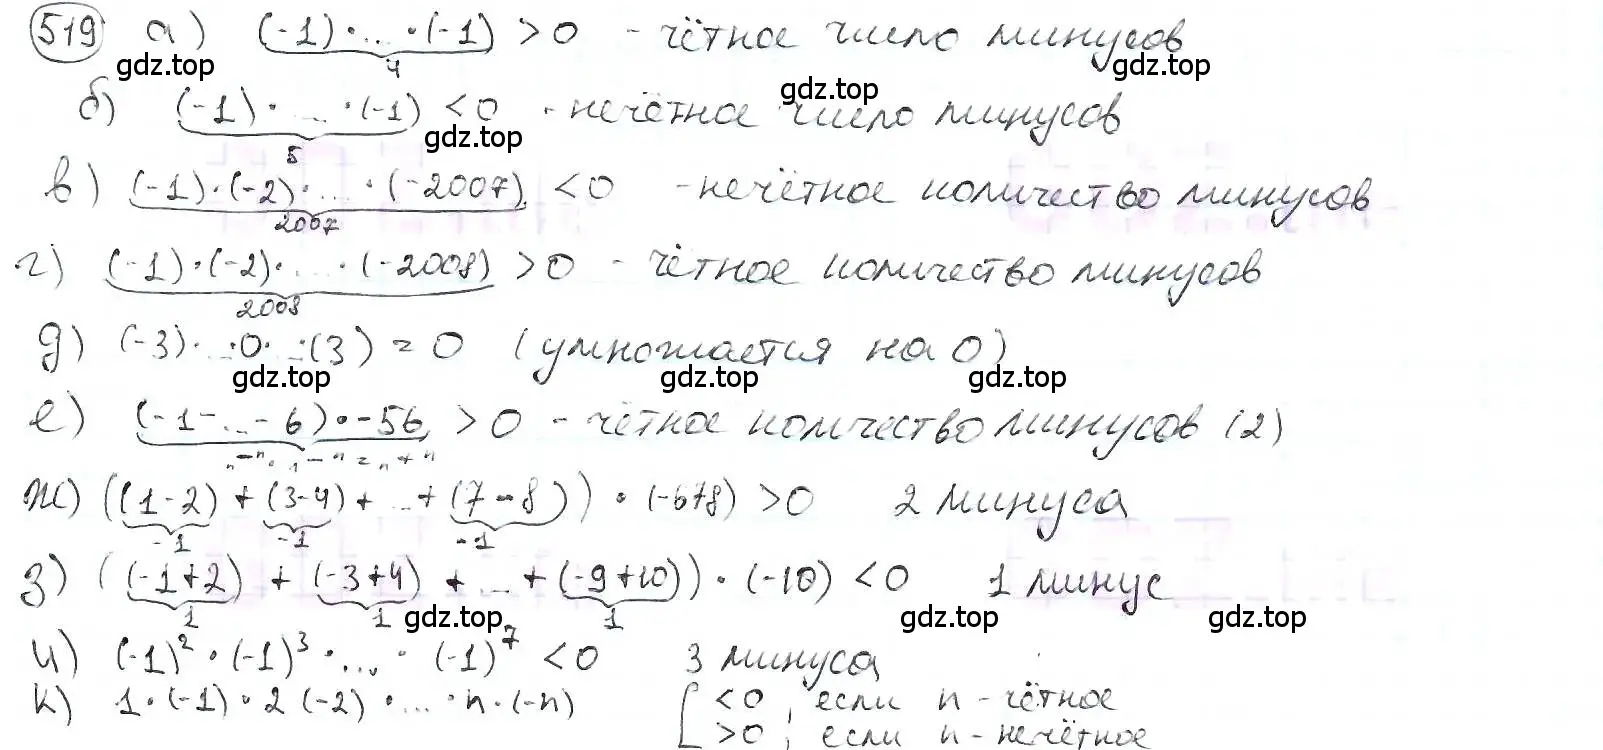 519 а) (-1)·...·(-1) > 0 - чётное число минусов
4
gdz.top gdz.top
б) (-1)·...·(-1) < 0 - нечётное число минусов
gdz.top gdz.top
5
в) (-1)·(-2)·...·(-2007) < 0 - нечётное количество минусов
2007
г) (-1)·(-2)·...·(-2008) > 0 - чётное количество минусов
2008
д) (-3)·...·0·...·(3) = 0 (умножается на 0)
gdz.top gdz.top gdz.top
е) (-1-...-6)·-56 > 0 - чётное количество минусов (2)
"-"·"-"="+"
ж) ((1-2)+(3-4)+...+(7-8))·(-678) > 0 2 минуса
-1 -1 -1
з) ((-1+2)+(-3+4)+...+(-9+10))·(-10) < 0 1 минус
1 1 1
gdz.top gdz.top gdz.top
и) (-1)²·(-1)³·...·(-1)⁷ < 0 3 минуса
к) 1·(-1)·2(-2)·...·n·(-n) [ < 0, если n - чётное
> 0, если n - нечётное